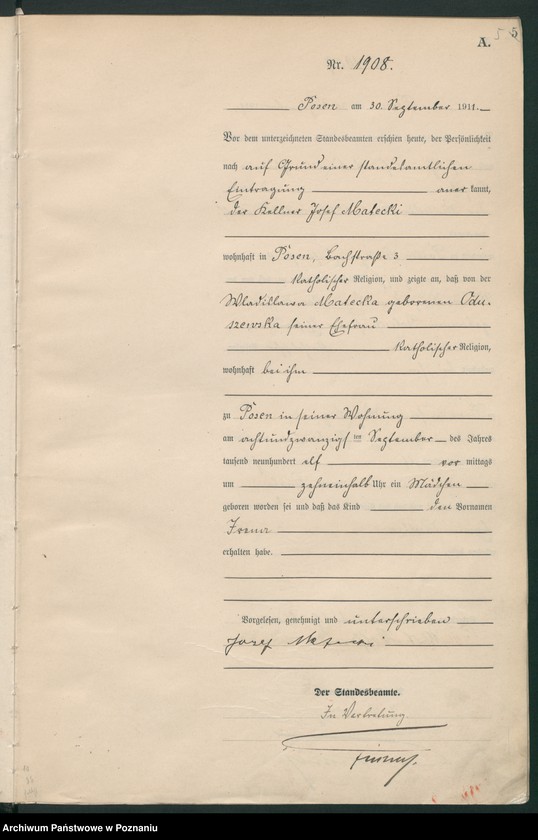 A. 5 5
Nr. 1908.
Posen am 30. September 1911.
Vor dem unterzeichneten Standesbeamten erschien heute, der Persönlichkeit
nach auf Grund einer standesamtlichen
Eintragung anerkannt,
der Kellner Josef Matecki
wohnhaft in Posen, Bachstraße 3
katholischer Religion, und zeigte an, daß von der
Wladislawa Matecka geborenen Odu-
szewska seiner Ehefrau
katholischer Religion,
wohnhaft bei ihm
zu Posen in seiner Wohnung
am achtundzwanzigsten September des Jahres
tausend neunhundert elf vormittags
um zehneinhalb Uhr ein Mädchen
geboren worden sei und daß das Kind den Vornamen
Irena
erhalten habe.
Vorgelesen, genehmigt und unterschrieben
Jozef Matecki
Der Standesbeamte.
In Vertretung
Archiwum Państwowe w Poznaniu